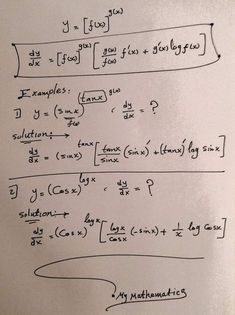 y = [f(x)]^g(x)
dy/dx = [f(x)]^g(x) [g(x)/f(x) f'(x) + g'(x) log f(x)]
Examples:
1] y = (sinx)^(tanx) , dy/dx = ?
f(x)
solution:
dy/dx = (sinx)^tanx [tanx/sinx (sinx)' + (tanx)' log sinx]
2] y = (Cosx)^logx , dy/dx = ?
solution:
dy/dx = (Cosx)^logx [logx/cosx (-sinx) + 1/x log Cosx]
My Mathematics